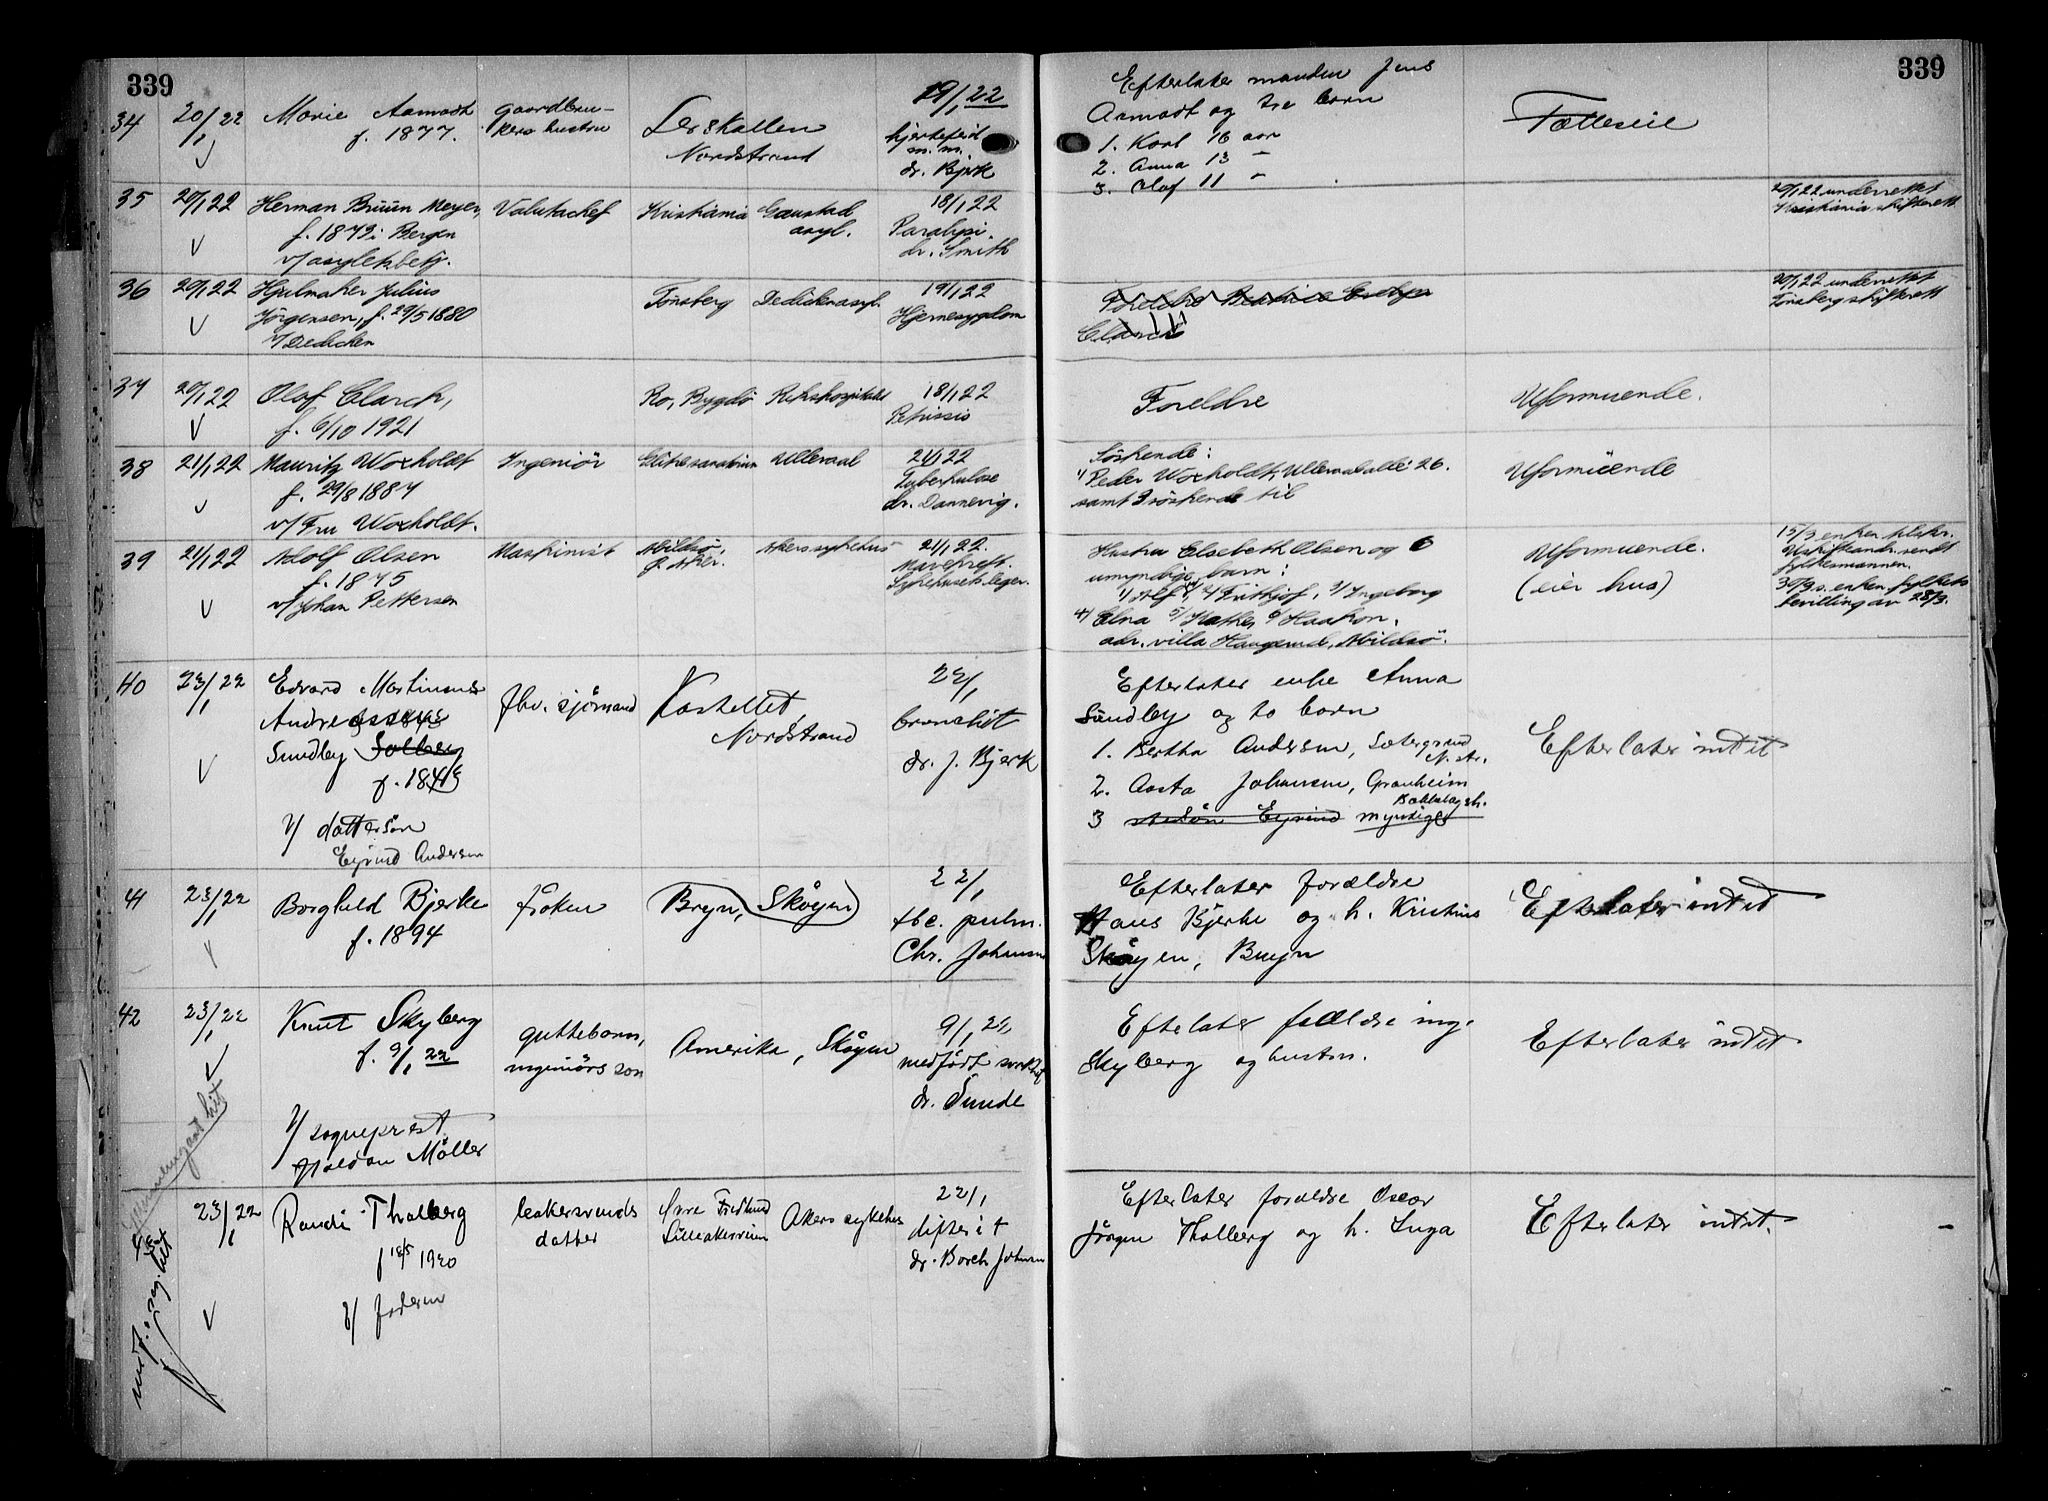 339
339
34
20/1 22
Marie Aamodt
f. 1877.
gaardbru-
kers hustru
Lerskallen
Nordstrand
19/1 22
hjertefeil
m. m.
dr. Bjerk
Efterlater manden Jens
Aamodt og tre barn
1. Karl 16 aar
2. Anna 13 "
3. Olaf 11 "
Fælleseie
35
20/1 22
Herman Bruun Meyer,
f. 1879 i Bergen
v/ asylets betj.
Valutachef
Kristiania
Gaustad
asyl.
18/1 22
Paralysi.
dr. Smith
20/1 22 underrettet
Kristiania skifterett
36
20/1 22
Hjalmaker Julius
Jörgensen, f. 29/5 1880
v/ Dedichen
Tönsberg
Dedichens asyl.
19/1 22
Hjernesygdom
Foreldre
Clarck
20/1 22 underrettet
Tönsberg skifterett
37
20/1 22
Olaf Clarck,
f. 6/10 1921
Ro, Bygdö
Rikshospitalet
18/1 22
Foreldre
Uformuende.
38
21/1 22
Mauritz Woxholdt
f. 29/8 1887
v/ Fru Woxholdt.
Ingeniör
Glitresanatorium
Ullevaal
21/1 22
Tuberkulose
dr. Dannevig.
Söskende:
1/ Peder Woxholdt, Ullevaalsallé 26.
samt 3 söskende til
Uformuende
39
21/1 22
Adolf Olsen
f. 1875
v/ Johan Pettersen
Maskinist
Abildsö,
Ö. Aker.
Akers sykehus
21/1 22.
Mavekreft.
Sykehusets leger.
Hustru Elsebeth Olsen og 6
umyndige barn:
1/ Alf, 2/ Frithjof, 3/ Ingeborg
4/ Elna 5/ Kathe, 6/ Haakon.
adr. villa Haugerud, Abildsö.
Uformuende.
(eier hus)
15/3 enken tilskr.
Uskifteandr. sendt
fylkesmannen.
30/3 s. enken fylkets
bevilling av 28/3.
40
23/1 22
Edvard Martinius
Andreassen
Sundby Solberg
f. 1845
v/ dattersön
Eyvind Andersen
fhv. sjömand
Kastellet,
Nordstrand
22/1
bronchit
dr. J. Bjerk
Efterlater enke Anna
Sundby og to barn
1. Bertha Andersen, Sætergrend
N. str.
2. Aasta Johansen, Granheim
Bækkelagsh.
3 Eyvind myndige
Efterlater intet
41
23/1 22
Borghild Bjerke
f. 1894
fröken
Bryn, Skøyen
22/1
tbc. pulm.
Chr. Johansen
Efterlater forældre
Hans Bjerke og h. Kristine
Skøyen, Bryn
Efterlater intet
42
23/1 22
Knut Skyberg
f. 9/1 22
v/ sogneprest
Haldan Möller
guttebarn,
ingeniörs sön
Amerika, Skøyen
9/1 22
medfödt svakhet
dr. Sunde
Efterlater forældre ing.
Skyberg og hustru.
Efterlater intet
43
23/1 22
Randi Thalberg
f 18/5 1920
v/ faderen
bakersvends
datter
Övre Fredlund
Lilleakerveien
Akers sykehus
22/1
difterit
dr. Borch Johnsen
Efterlater forældre Oscar
Jörgen Thalberg og h. Inga
Efterlater intet.